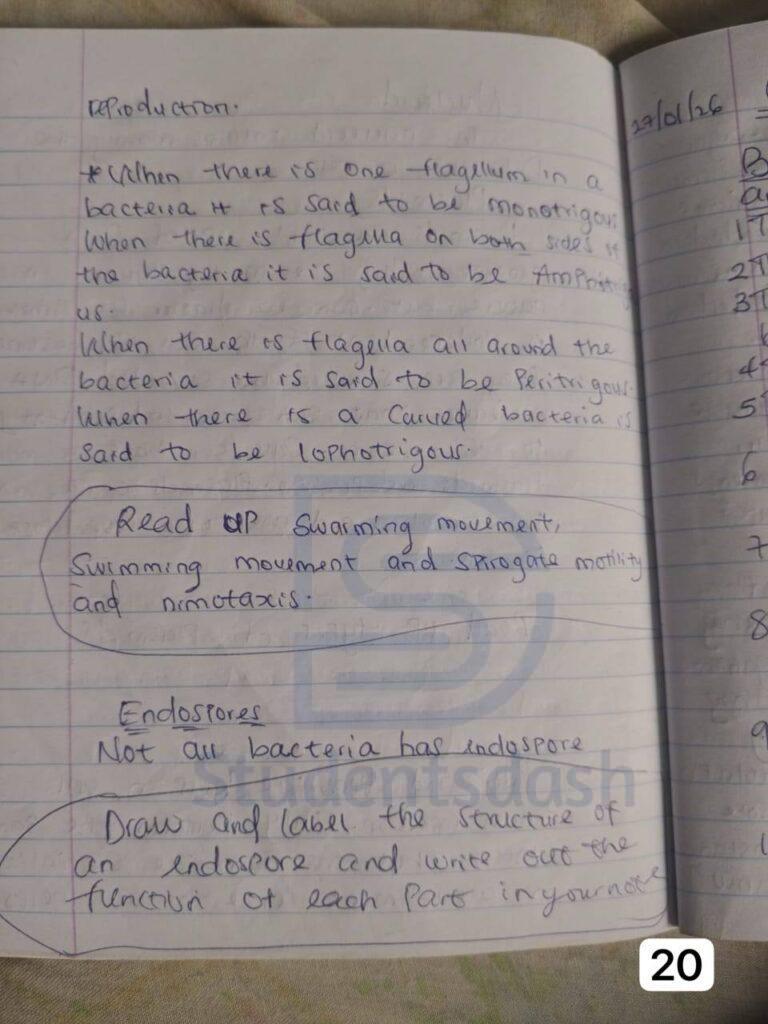 reproduction.
*When there is one flagellum in a
bacteria it is said to be monotrigous
When there is flagella on both sides of
the bacteria it is said to be Amphitrig
us.
When there is flagella all around the
bacteria it is said to be Peritrigous.
When there is a Curved bacteria is
said to be lophotrigous.
Read up swarming movement,
Swimming movement and spirogate motility
and nimotaxis.
Endospores
Not all bacteria has endospore
Draw and label the structure of
an endospore and write out the
function of each part in your note
Studentsdash
27/01/26
B
a
1 T
2 T
3 T
4
5
6
7
8
9
20